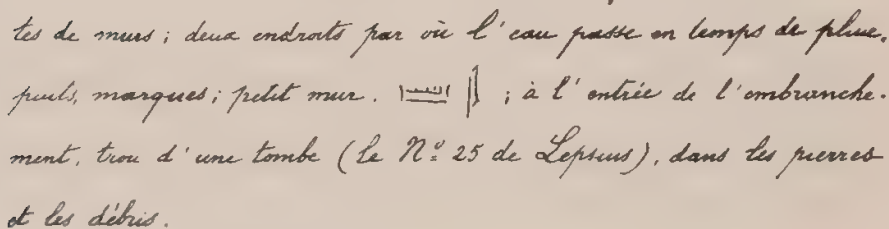 tes de murs ; deux endroits par où l'eau passe en temps de pluie,
puits, marques ; petit mur. ; à l'entrée de l'embranche-
ment, trou d'une tombe (le N.º 25 de Lepsius), dans les pierres
et les débris.